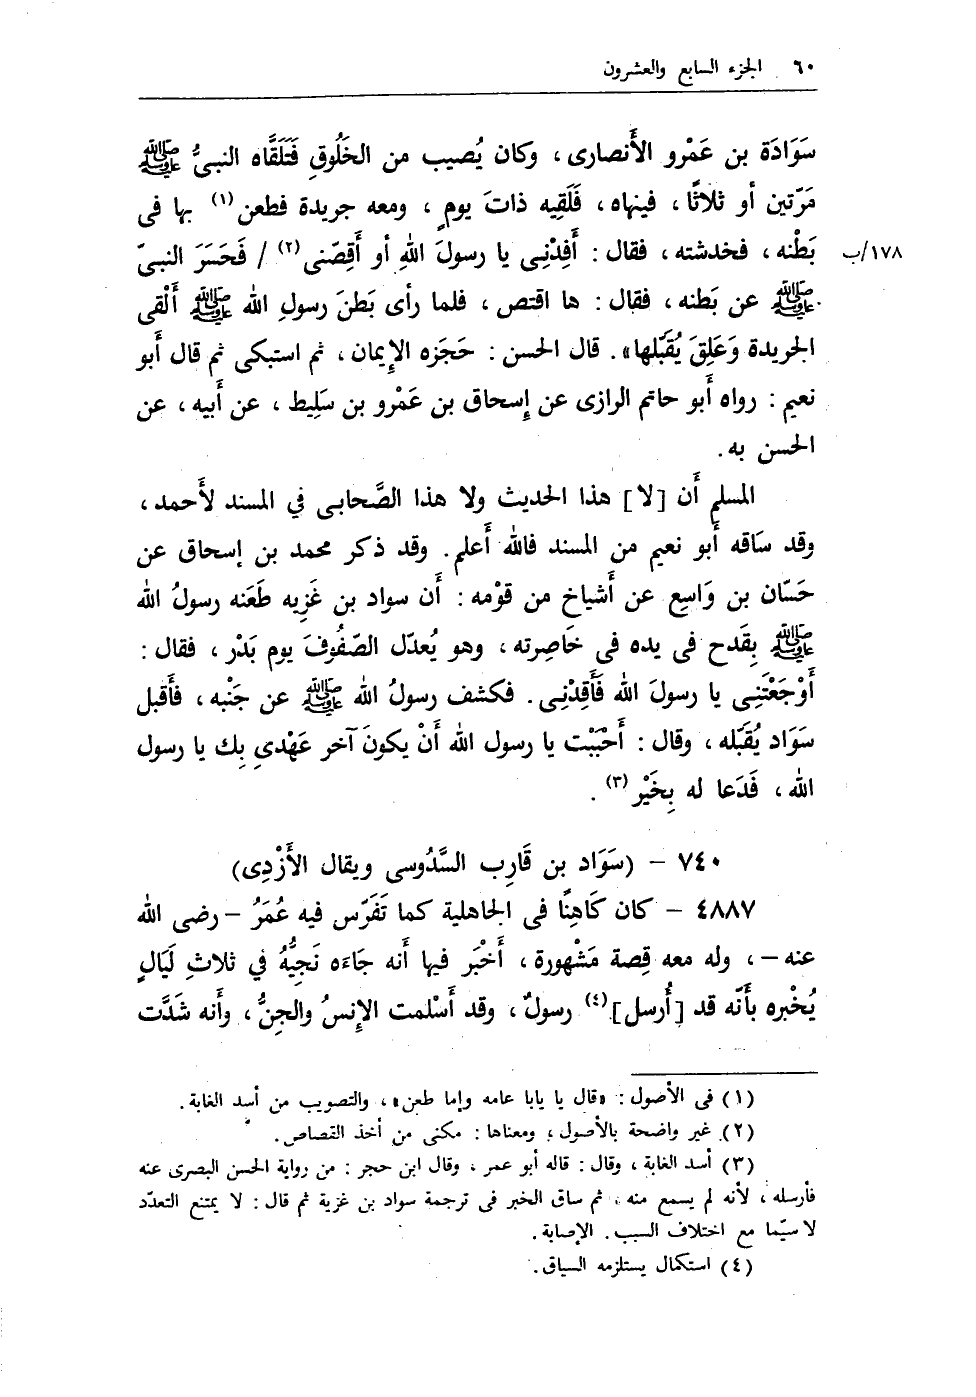 ٦٠ الجزء السابع والعشرون
سَوَادَة بن عَمْرو الأَنصارى ، وكان يُصيب من الخَلُوقِ فَتَلَقَّاه النبىُّ ﷺ
مَرّتين أو ثلاثًا ، فينهاه ، فَلَقِيه ذاتَ يومٍ ، ومعه جريدة فطعن (١) بها فى
بَطْنه ، فخدشته ، فقال : أَقِدْنِى يا رسولَ اللهِ أو أَقِصّنى (٢) / فَحَسَر النبىّ
١٧٨/ب
ﷺ عن بَطنه ، فقال : ها اقتص ، فلما رأى بَطنَ رسولِ الله ﷺ أَلْقى
الجريدة وَعَلِقَ يُقَبّلها» . قال الحسن : حَجَزه الإيمان ، ثم استبكى ثم قال أَبو
نعيم : رواه أَبو حاتم الرازى عن إِسحاق بن عَمْرو بن سَلِيط ، عن أَبيه ، عن
الحسن به .
المسلم أَن [لا] هذا الحديث ولا هذا الصَّحابى فى المسند لأَحمد ،
وقد سَاقه أَبو نعيم من المسند فالله أَعلم . وقد ذكر محمد بن إسحاق عن
حَسّان بن وَاسِع عن أَشياخ من قوْمه : أَن سواد بن غَزِيه طَعَنه رسولُ الله
ﷺ بِقَدح فى يده فى خَاصِرته ، وهو يُعدّل الصّفُوفَ يوم بَدْر ، فقال :
أَوْجَعْتَنِى يا رسولَ الله فَأَقِدْنِى . فكشف رسولُ الله ﷺ عن جَنْبه ، فأَقبل
سَوَاد يُقَبّله ، وقال : أَحْبَبْت يا رسول الله أَنْ يكونَ آخر عَهْدى بِك يا رسول
الله ، فَدَعا له بِخَيْر (٣) .
٧٤٠ – (سَوَاد بن قَارِب السَّدُوسى ويقال الأَزْدِى)
٤٨٨٧ – كان كَاهِنًا فى الجاهلية كما تَفَرّس فيه عُمَرُ – رضى الله
عنه – ، وله معه قِصة مَشْهورة ، أَخْبَر فيها أنه جَاءَه نَجِيُّهُ فى ثلاثِ لَيَالٍ
يُخْبره بأَنّه قد [أُرسل] (٤) رسولٌ ، وقد أَسْلمت الإِنسُ والجِنُّ ، وأَنه شَدَّت
(١) فى الأصول : «قال يا يابا عامه وإما طعن» ، والتصويب من أسد الغابة .
(٢) غير واضحة بالأصول ، ومعناها : مكنى من أخذ القصاص .
(٣) أسد الغابة ، وقال : قاله أبو عمر ، وقال ابن حجر : من رواية الحسن البصرى عنه
فأرسله ، لأنه لم يسمع منه ، ثم ساق الخبر فى ترجمة سواد بن غزية ثم قال : لا يمتنع التعدّد
لا سيّما مع اختلاف السبب . الإصابة .
(٤) استكمال يستلزمه السياق .